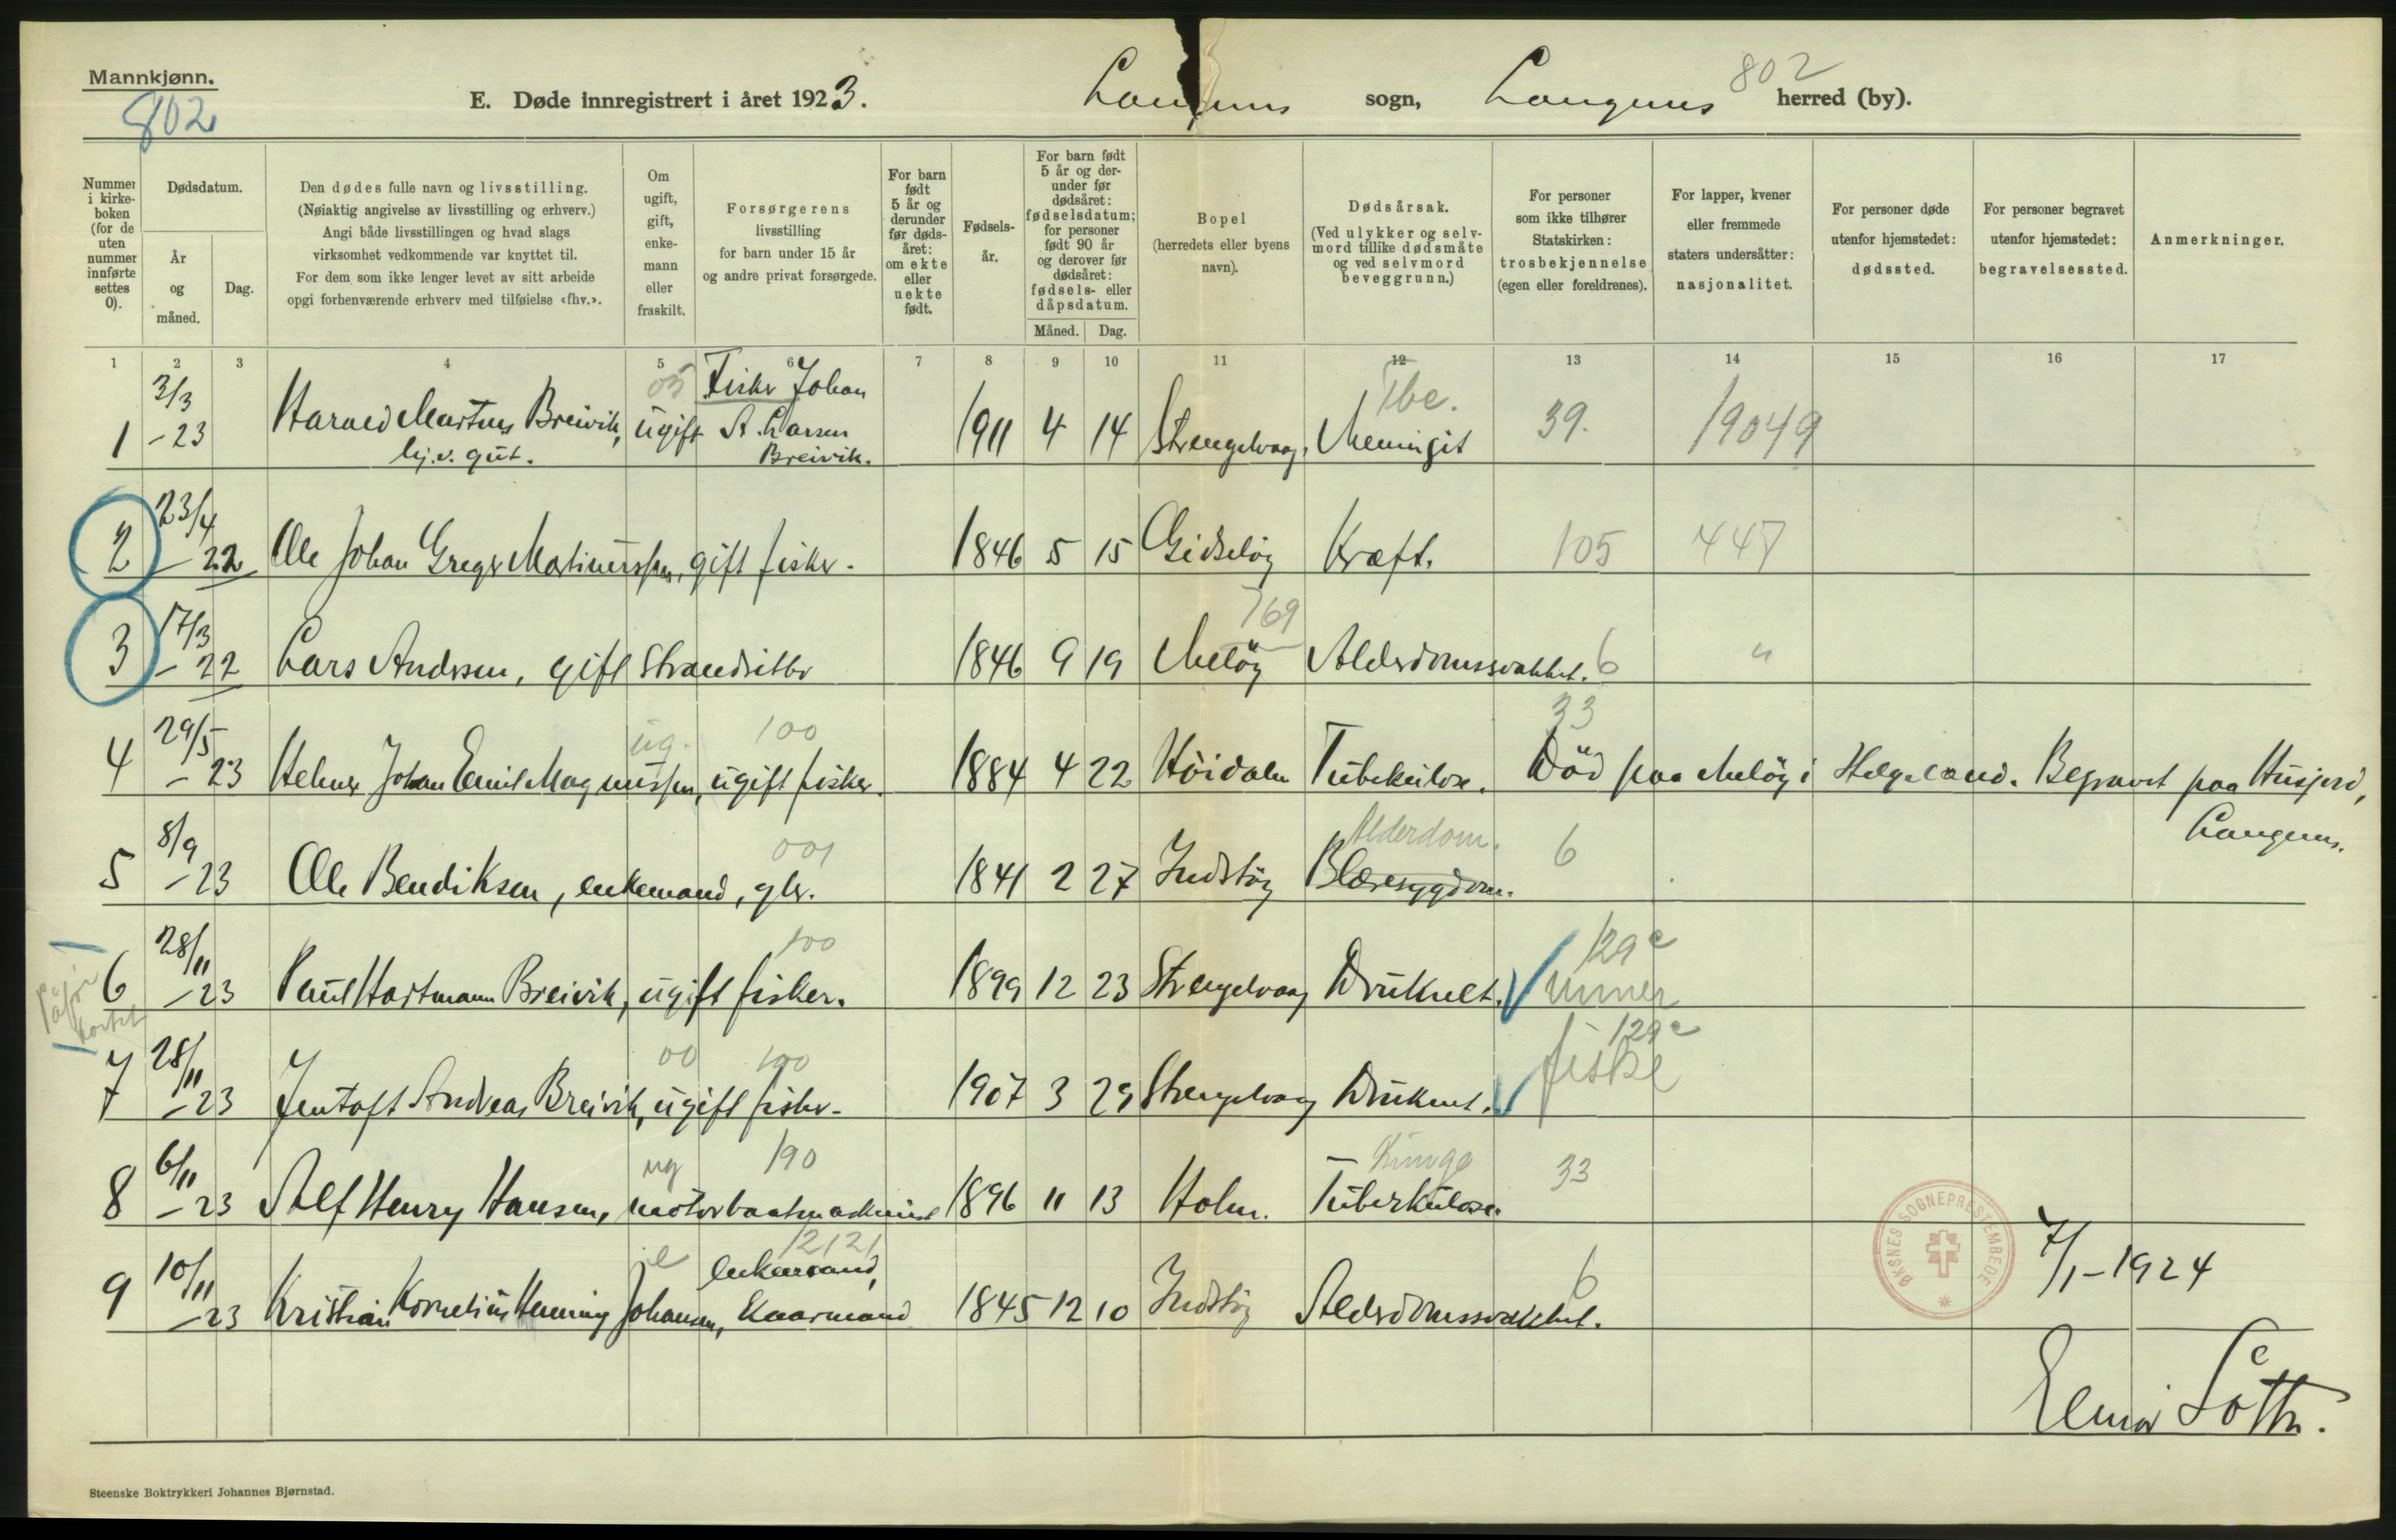 Mannkjønn.
802
E. Døde innregistrert i året 1923.
Langenes sogn, Langenes herred (by).
802
Nummer i kirkeboken (for de uten nummer innførte settes 0).
Dødsdatum.
År og måned.
Dag.
Den dødes fulle navn og livsstilling.
(Nøiaktig angivelse av livsstilling og erhverv.)
Angi både livsstillingen og hvad slags
virksomhet vedkommende var knyttet til.
For dem som ikke lenger levet av sitt arbeide
opgi forhenværende erhverv med tilføielse «fhv.».
Om ugift, gift, enkemann eller fraskilt.
Forsørgerens
livsstilling
for barn under 15 år
og andre privat forsørgede.
For barn født 5 år og derunder før dødsåret: om ekte eller uekte født.
Fødselsår.
For barn født 5 år og derunder før dødsåret: fødselsdatum; for personer født 90 år og derover før dødsåret: fødsels- eller dåpsdatum.
Måned. Dag.
Bopel
(herredets eller byens
navn).
Dødsårsak.
(Ved ulykker og selvmord tillike dødsmåte og ved selvmord beveggrunn.)
For personer
som ikke tilhører
Statskirken:
trosbekjennelse
(egen eller foreldrenes).
For lapper, kvener
eller fremmede
staters undersåtter:
nasjonalitet.
For personer døde
utenfor hjemstedet:
dødssted.
For personer begravet
utenfor hjemstedet:
begravelsessted.
Anmerkninger.
1 2 3 4 5 6 7 8 9 10 11 12 13 14 15 16 17
3/3 05 Fisker Johan Tbc.
1 -23 Harald Martens Breivik, ugift A. Larsen 1911 4 14 Strengelvaag, Meningit 39. 19049
hj.v. gut. Breivik.
23/4
2 -22 Ole Johan Greger Martinussen, gift fisker. 1846 5 15 Gidsløy Kræft. 105 447
17/3 769
3 -22 Lars Andersen, gift Strandsitter 1846 9 19 Meløy Alderdomssvakhet. 6 "
29/5 ug. 100 33
4 -23 Helmer Johan Emil Magnussen, ugift fisker. 1884 4 22 Höidalen Tuberkulose. Död paa Melöy i Helgeland. Begravet paa Husjord,
Langenes.
8/9 001 Alderdom.
5 -23 Ole Bendiksen, enkemand, gbr. 1841 2 27 Indstöy Blæresygdom. 6
28/11 100 129c
6 -23 Paul Hartmann Breivik, ugift fisker. 1899 12 23 Strengelvaag Druknet. under
28/11 00 100 129c
7 -23 Jentoft Andreas Breivik, ugift fisker. 1907 3 29 Strengelvaag Druknet. fiske
6/11 ug 190 Lunge
8 -23 Alf Henry Hansen, motorbaatmaskinist 1896 11 13 Holm. Tuberkulose. 33
10/11 12121 enkemand,
9 -23 Kristian Kornelius Henning Johansen, Kaarmand 1845 12 10 Indstöy Alderdomssvakhet. 6
ØKSNES SOGNEPRESTEMBEDE
7/1-1924
Steenske Boktrykkeri Johannes Bjørnstad.